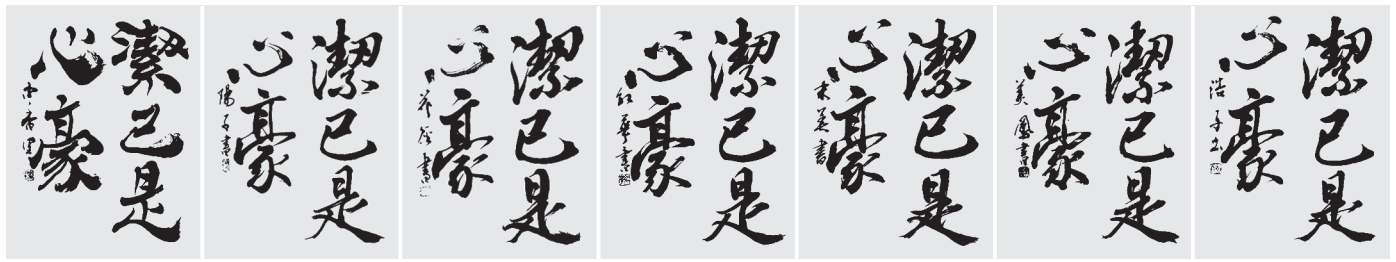 潔己是
心豪
潔己是
心豪
潔己是
心豪
潔己是
心豪
紅葉書
潔己是
心豪
潔己是
心豪
美鳳書
潔己是
心豪
浩子書